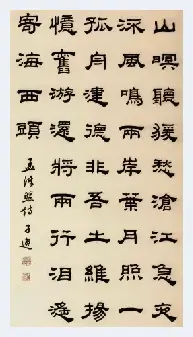 山暝聽猨愁滄江急夜
流風鳴兩岸葉月照一
孤舟建德非吾土維揚
憶舊游還將兩行泪遙
寄海西頭
孟浩然詩